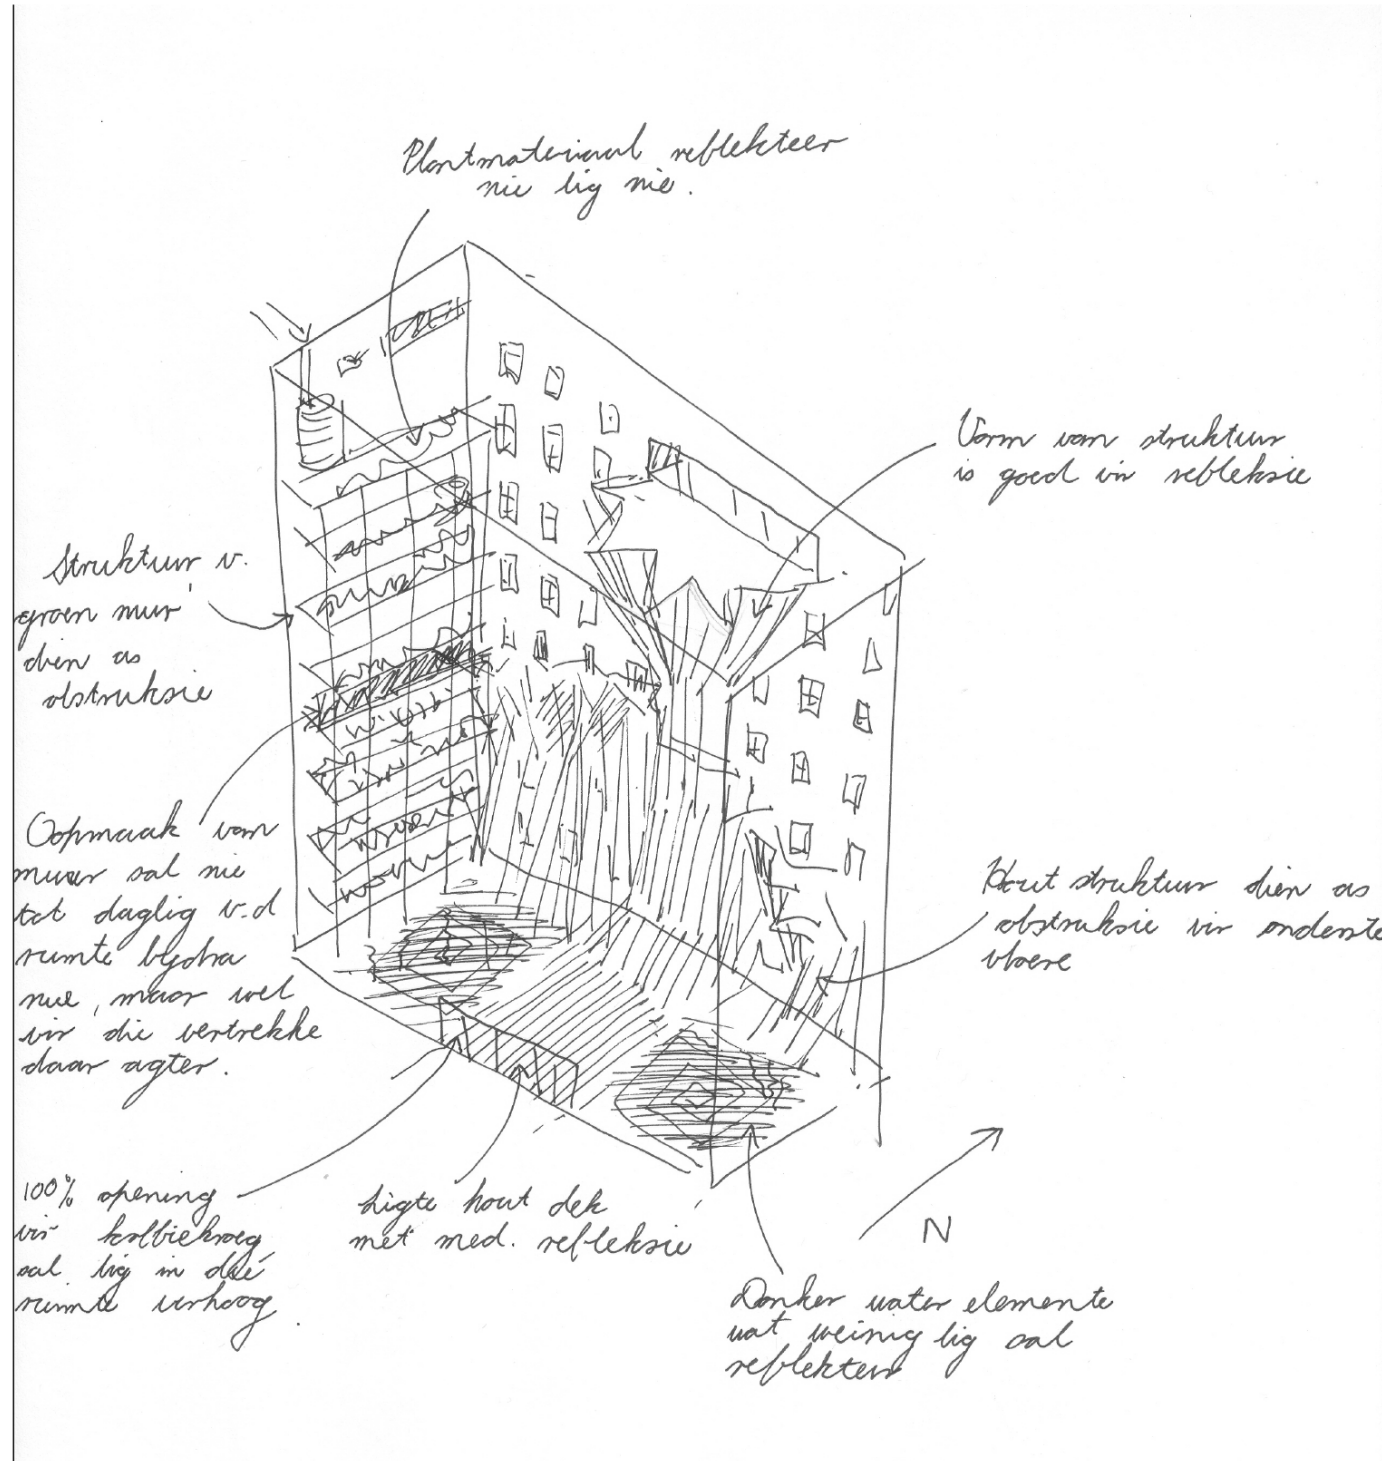 Plantmateriaal reflekteer
nie lig nie.
Vorm van struktuur
is goed vir refleksie
Struktuur v.
groen muur
dien as
obstruksie
Oopmaak van
muur sal nie
tot daglig v.d
ruimte bydra
nie, maar wel
vir die vertrekke
daar agter.
Hout struktuur dien as
obstruksie vir onderste
vloere
100% opening
vir koffiekroeg
sal lig in dié
ruimte verhoog.
Ligte hout dek
met med. refleksie
N
Donker water elemente
wat weinig lig sal
reflekteer